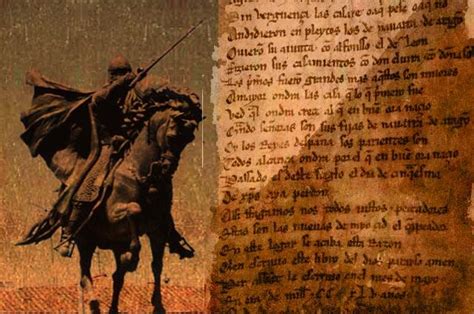 Sin verguença las casare oaq pese oaq
Andidieron en pleytos los de nauarra τ de arago
Ouiero su aiunta co alfonsso el de Leon
Fizieron sus casamientos con don eluira τ con doña
Los pmos fuero grandes mas aqstos son miiores
A mayor ondra las casa q lo q pmero fue
Ved ql ondra creçe al q en bue ora naçio
Quado señoras son sus fijas de nauarra τ de arago
Oy los Reyes despaña sos parientes son
A todos alcança ondra por el q en bue ora naçio
Passado es deste sieglo el dia de
De xps aya perdon
Assi ffagamos nos todos iustos τ peccadores
Estas son las nueuas de myo çid el
En este logar se acaba esta Razon
Quien escriuio este libro del dios parayso amen
Per abbat le escriuio en el mes de mayo
En era de mill τ CC años